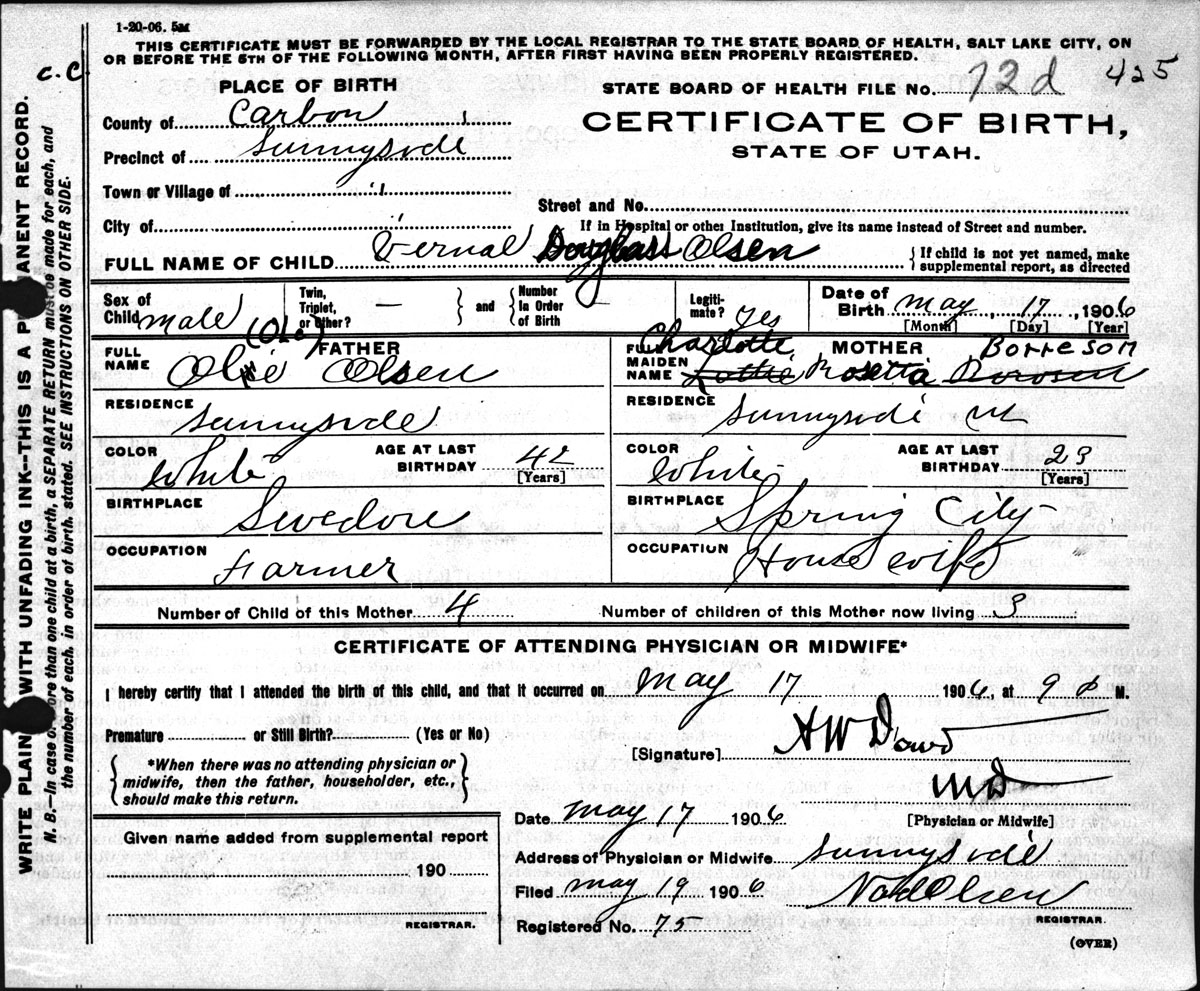 1-20-06. 5M
THIS CERTIFICATE MUST BE FORWARDED BY THE LOCAL REGISTRAR TO THE STATE BOARD OF HEALTH, SALT LAKE CITY, ON
OR BEFORE THE 5TH OF THE FOLLOWING MONTH, AFTER FIRST HAVING BEEN PROPERLY REGISTERED.
C.C.
PLACE OF BIRTH
STATE BOARD OF HEALTH FILE No. 72d 425
County of Carbon
CERTIFICATE OF BIRTH,
Precinct of Sunnyside
STATE OF UTAH.
Town or Village of "
Street and No.
City of "
If in Hospital or other Institution, give its name instead of Street and number.
FULL NAME OF CHILD Vernal Douglass Olsen
{If child is not yet named, make
supplemental report, as directed
Sex of Child male
Twin, Triplet, or Other? — } and { Number In Order of Birth —
Legiti-mate? Yes
Date of Birth May 17, 1906
[Month] [Day] [Year]
FATHER
FULL NAME Olie (Ole) Olsen
RESIDENCE Sunnyside
COLOR White
AGE AT LAST BIRTHDAY 42
[Years]
BIRTHPLACE Sweden
OCCUPATION Farmer
MOTHER
FULL MAIDEN NAME Charlotte Lottie Rosetta Borreson
RESIDENCE Sunnyside Ut
COLOR White
AGE AT LAST BIRTHDAY 23
[Years]
BIRTHPLACE Spring City
OCCUPATION House wife
Number of Child of this Mother 4
Number of children of this Mother now living 3
CERTIFICATE OF ATTENDING PHYSICIAN OR MIDWIFE*
I hereby certify that I attended the birth of this child, and that it occurred on May 17 1906, at 9 P M.
Premature or Still Birth? (Yes or No)
[Signature] A W Dowd
M.D.
[Physician or Midwife]
{*When there was no attending physician or
midwife, then the father, householder, etc.,
should make this return.}
Date May 17 1906
Given name added from supplemental report
190
REGISTRAR.
Address of Physician or Midwife Sunnyside
Filed May 19 1906
Nod Olsen
REGISTRAR.
Registered No. 75
(OVER)
WRITE PLAINLY WITH UNFADING INK—THIS IS A PERMANENT RECORD.
N. B.—In case of more than one child at a birth, a SEPARATE RETURN must be made for each, and
the number of each, in order of birth, stated. SEE INSTRUCTIONS ON OTHER SIDE.